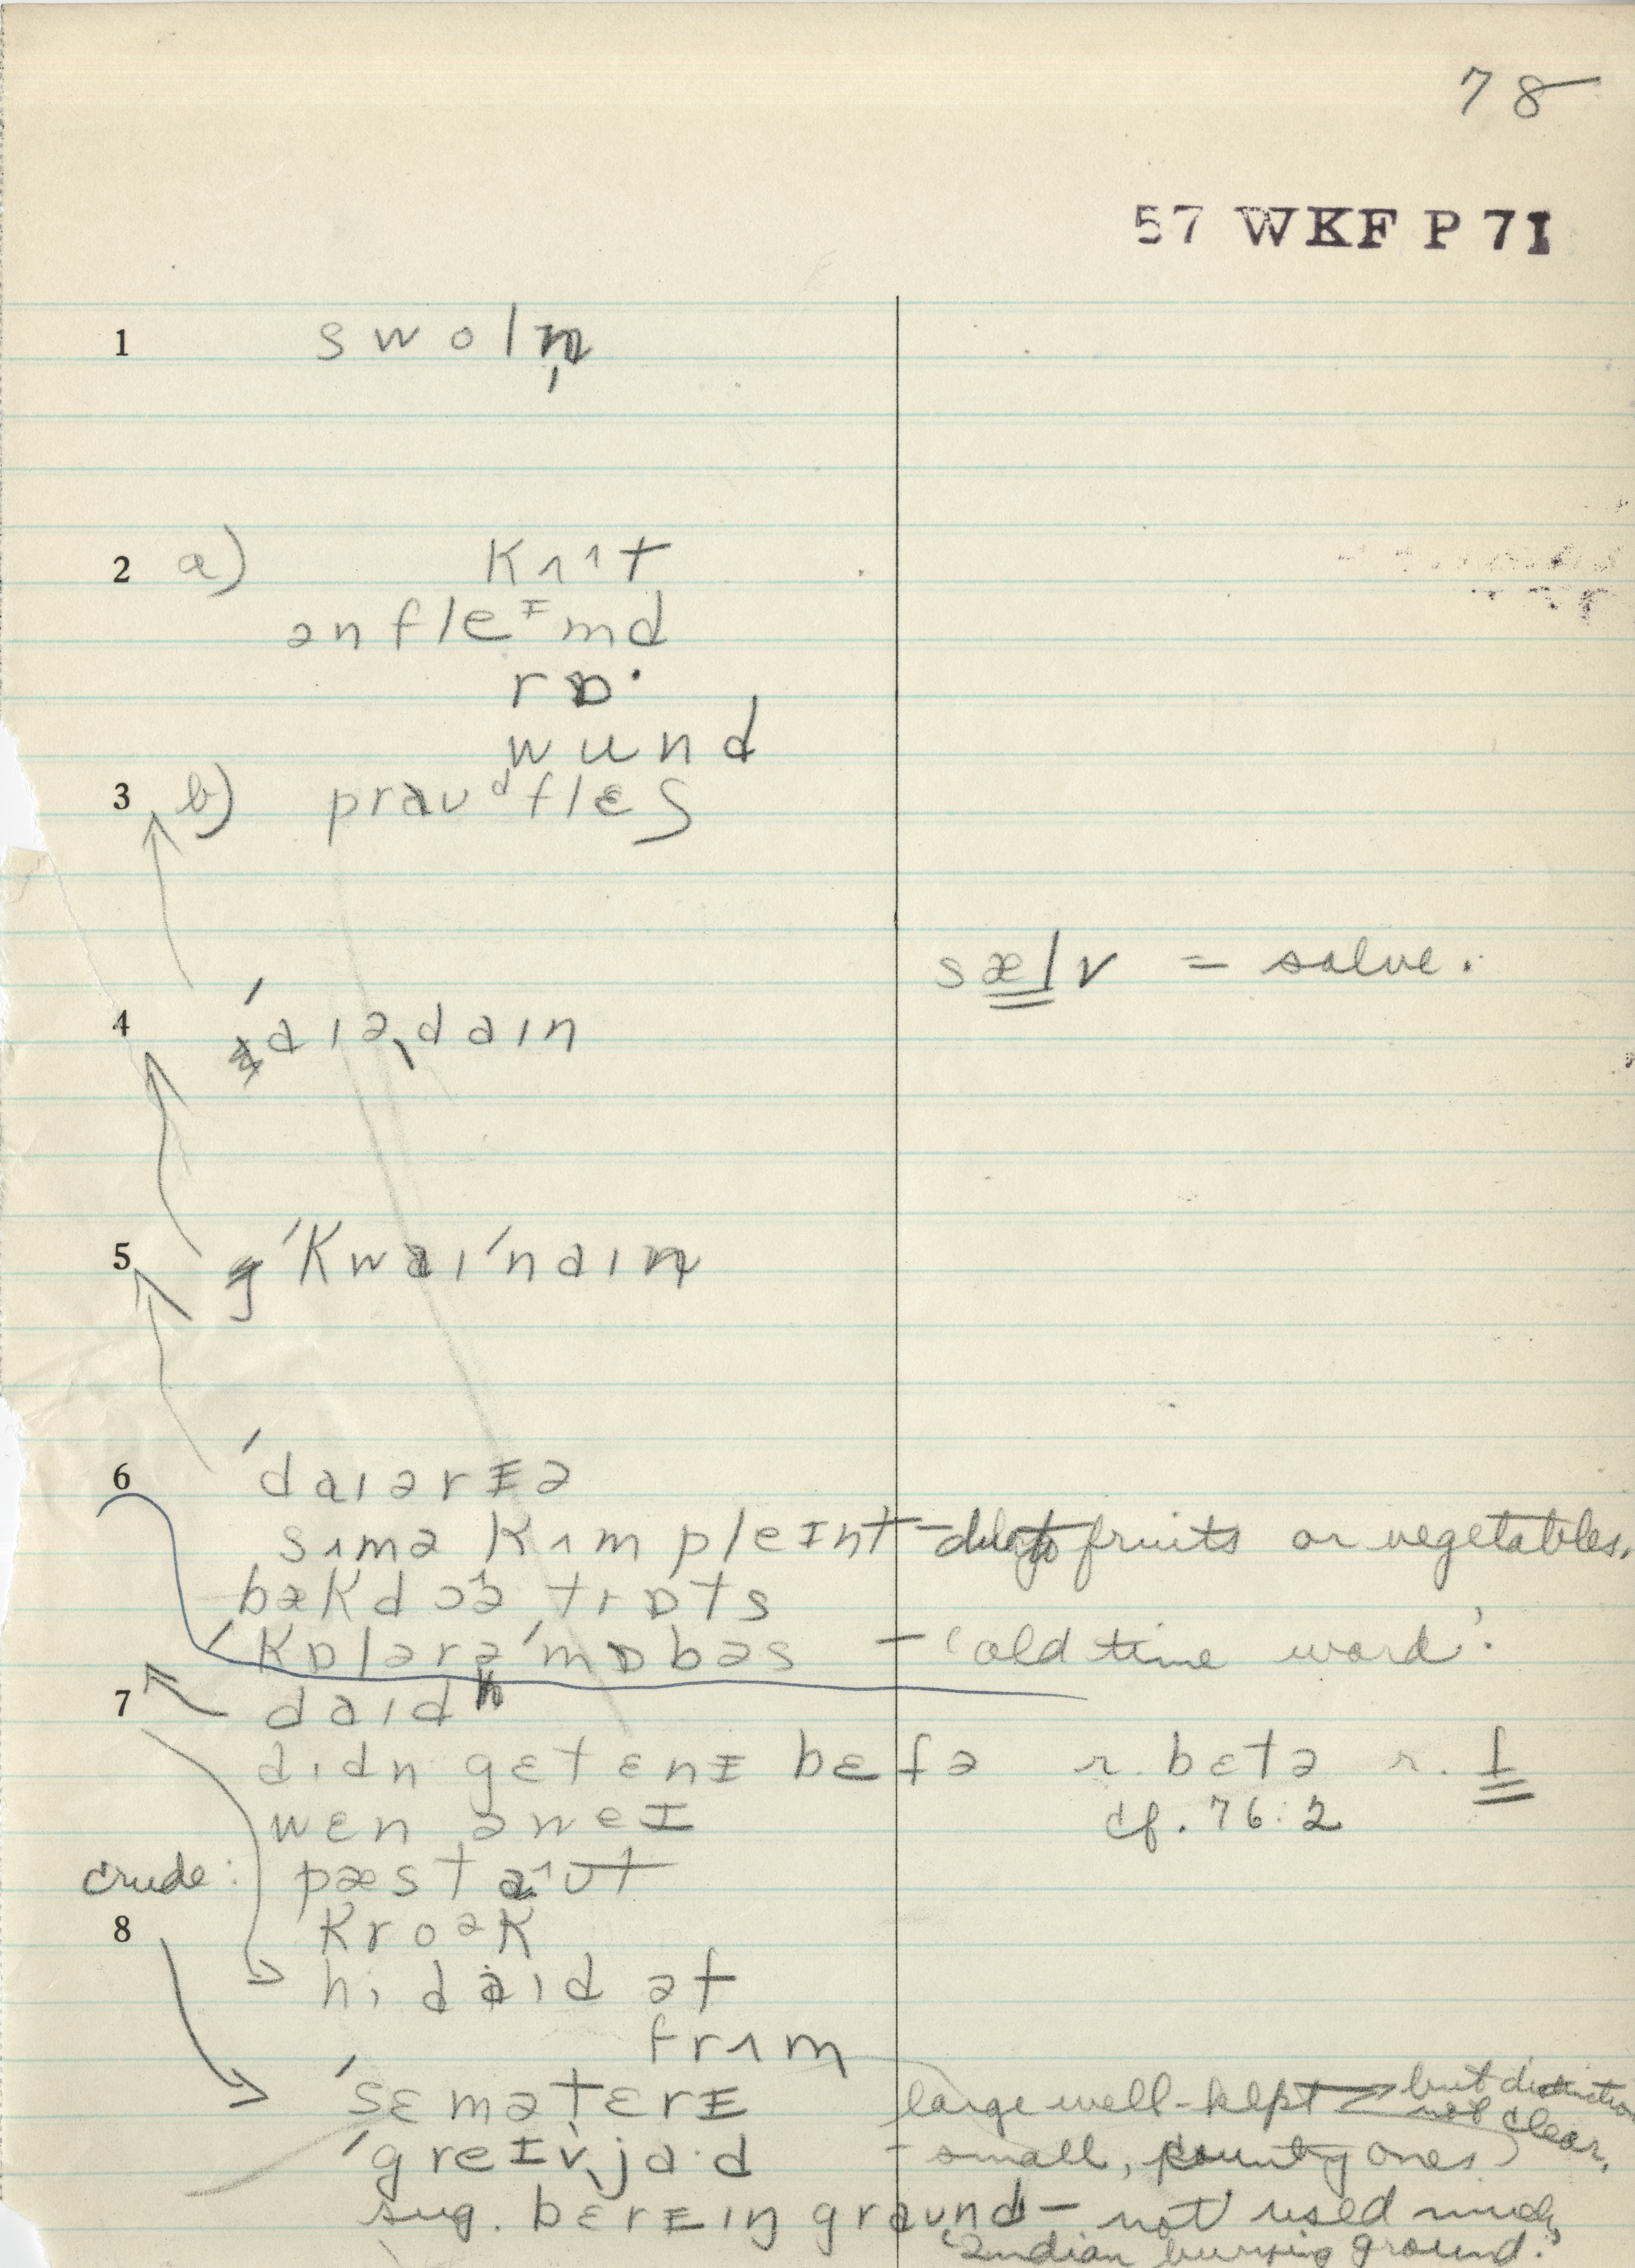 78
57 WKF P 71
1 swoln̩
2 a) kʌ^t
ənfleɪmd
rɒ·
wund
3 b) praʊᵈflɛʃ
sælv = salve.
4 ˈaɪəˌdaɪn
5 ˈkwaɪˈnaɪn
6 ˈdaɪərɪə
sʌmə kʌmpleɪnt – fruits or vegetables.
bækdɔə trɒts
ˈkɒlərəˈmɒbəs – 'old time word'.
7 daɪd
dɪdn gɛt ɛnɪ bɛfə r. bɛtə r. f
wɛn əweɪ cf. 76:2
crude: pæst a^ʊt
8 kroək
hi daɪd ət
frʌm
ˈsɛmətɛrɪ large well-kept → but distinction not clear.
ˈgreɪvˌja·d – small, county ones
sug. bɛrɪɪŋ graʊnd – not used much,
'Indian burying ground.'